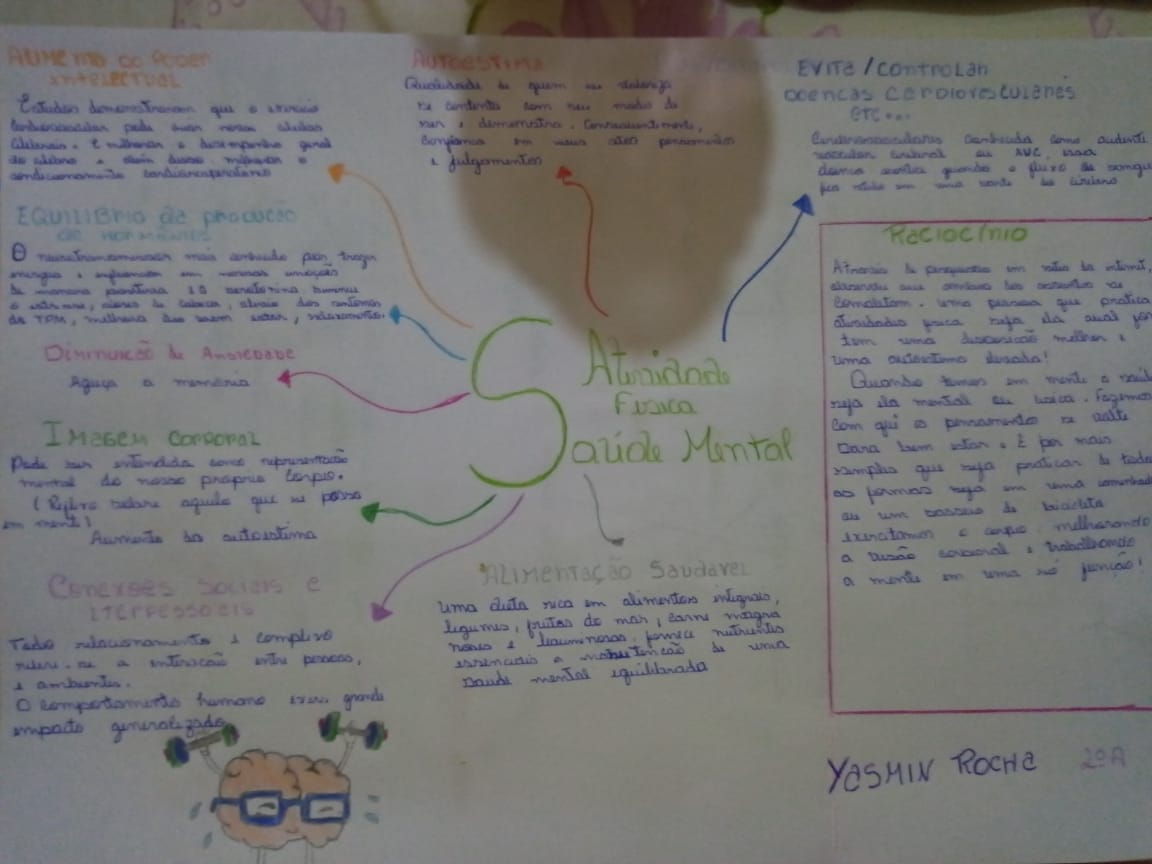 AUMENTO DO PODER
INTELECTUAL
Estudos demonstraram que o exercício
cardiovascular pode criar novas células
cerebrais. E melhorar o desempenho geral
do cérebro e além disso melhorar o
condicionamento cardiorrespiratório
EQUILIBRIO da producão
de hormônios
O neurotransmissor mais conhecido por trazer
energia e influenciar em nossas emoções
de maneira positiva é a serotonina diminui
o estresse, dores de cabeça, alívio dos sintomas
da TPM, melhora do bem estar, relaxamento.
Diminuicão de Ansiedade
Aguça a memória
Imagem corporal
Pode ser entendida como representacão
mental do nosso próprio corpo.
(Reflexo sobre aquilo que se passa
em mente)
Aumento da autoestima
Conexões Sociais e
Todo relacionamento é complexo
refere-se a interacão entre pessoas,
e ambientes.
O comportamento humano exerce grande
impacto generalizado
AUTOESTIMA
Qualidade de quem se valoriza
se contenta com seu modo de
ser e demonstra, consequentemente,
confiança em seus atos pensamentos
e julgamentos
EVITA/CONTROLAR
DOENCAS
ETC...
Cardiovasculares conhecida como acidente
vascular cerebral ou AVC, essa
doença acontece quando o fluxo de sangue
em uma parte do cérebro
Atividade
Fisica
Saúde Mental
Alimentação Saudável
Uma dieta rica em alimentos integrais,
legumes, frutos do mar, carne magra
nozes e leguminosas, fornece nutrientes
essenciais a manutencão de uma
saude mental equilibrada
Raciocínio
Através de pesquisas em sites da internet,
observei que ambos os assuntos se
completam. Uma pessoa que pratica
atividades fisica seja ela qual for
tem uma disposicão melhor e
uma autoestima elevada!
Quando temos em mente a saúde
seja ela mental ou fisica. Fazemos
com que os pensamentos se volte
para bem estar e É por mais
simples que seja praticar de todas
as formas seja em uma caminhada
ou um passeio de bicicleta
exercitamos o corpo melhorando
a visão corporal e trabalhando
a mente em uma só junção!
YASMIN ROCHA 2ºA